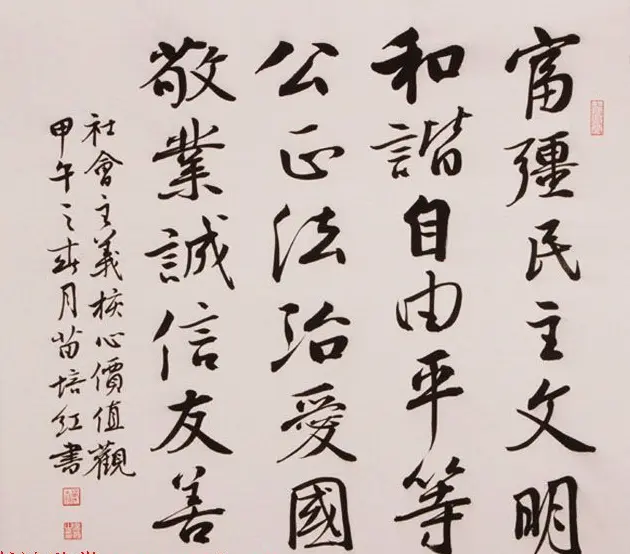 富彊民主文明
和諧自由平等
公正法治愛國
敬業誠信友善
社會主義核心價值觀
甲午之春月苗培红書